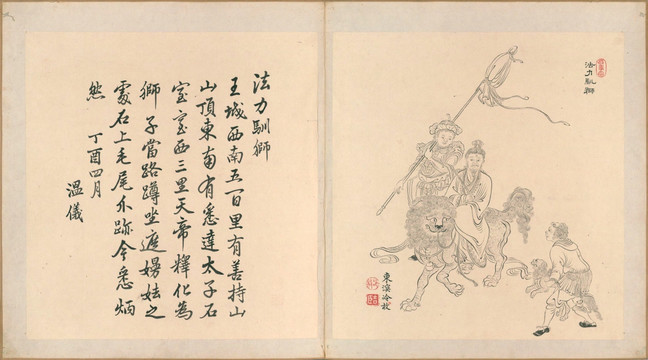 法力馴獅
東溪冷枚
法力馴獅
王城西南五百里有善持山
山頂東南有悉達太子石
室室西三里天帝釋化為
獅子當路蹲坐遮嫚妶之
處石上毛尾爪跡今悉炳
然 丁酉四月
溫儀